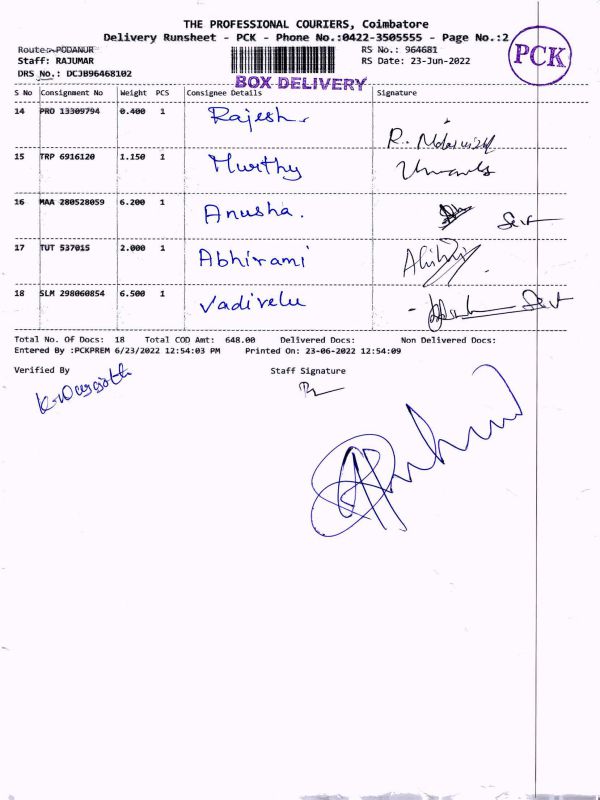 THE PROFESSIONAL COURIERS, Coimbatore
Delivery Runsheet - PCK - Phone No.:0422-3505555 - Page No.:2
Route: PODANUR RS No.: 964681
Staff: RAJUMAR RS Date: 23-Jun-2022
DRS No.: DCJB96468102
BOX DELIVERY
PCK
S No Consignment No Weight PCS Consignee Details Signature
14 PRO 13309794 0.400 1 Rajesh
15 TRP 6916120 1.150 1 Murthy
16 MAA 280528059 6.200 1 Anusha.
17 TUT 537015 2.000 1 Abhirami
18 SLM 298060854 6.500 1 Vadivelu
Total No. Of Docs: 18 Total COD Amt: 648.00 Delivered Docs: Non Delivered Docs:
Entered By :PCKPREM 6/23/2022 12:54:03 PM Printed On: 23-06-2022 12:54:09
Verified By Staff Signature